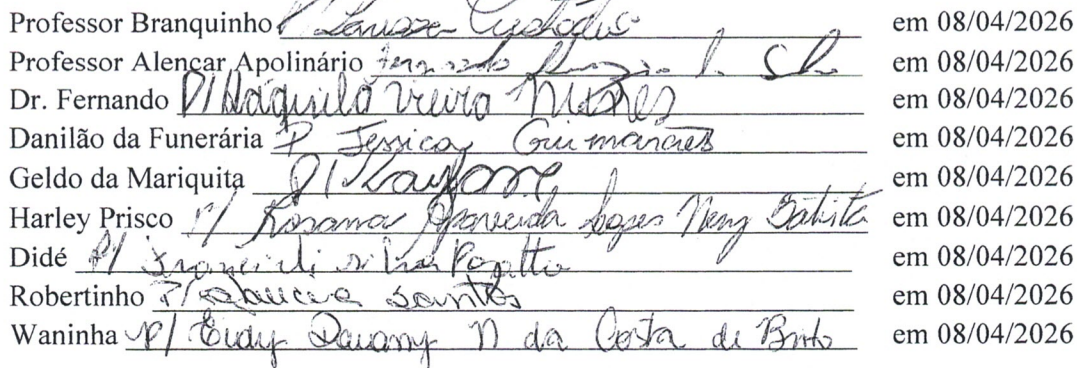 Professor Branquinho P/ Larissa Custódio em 08/04/2026
Professor Alencar Apolinário Fernando em 08/04/2026
Dr. Fernando P/ Vieira Nunes em 08/04/2026
Danilão da Funerária P Jessica Guimarães em 08/04/2026
Geldo da Mariquita P/ em 08/04/2026
Harley Prisco P/ Rosama Aparecida Lopes Neny Batista em 08/04/2026
Didé P/ Silva em 08/04/2026
Robertinho P/ Santos em 08/04/2026
Waninha P/ N da Costa de Brito em 08/04/2026